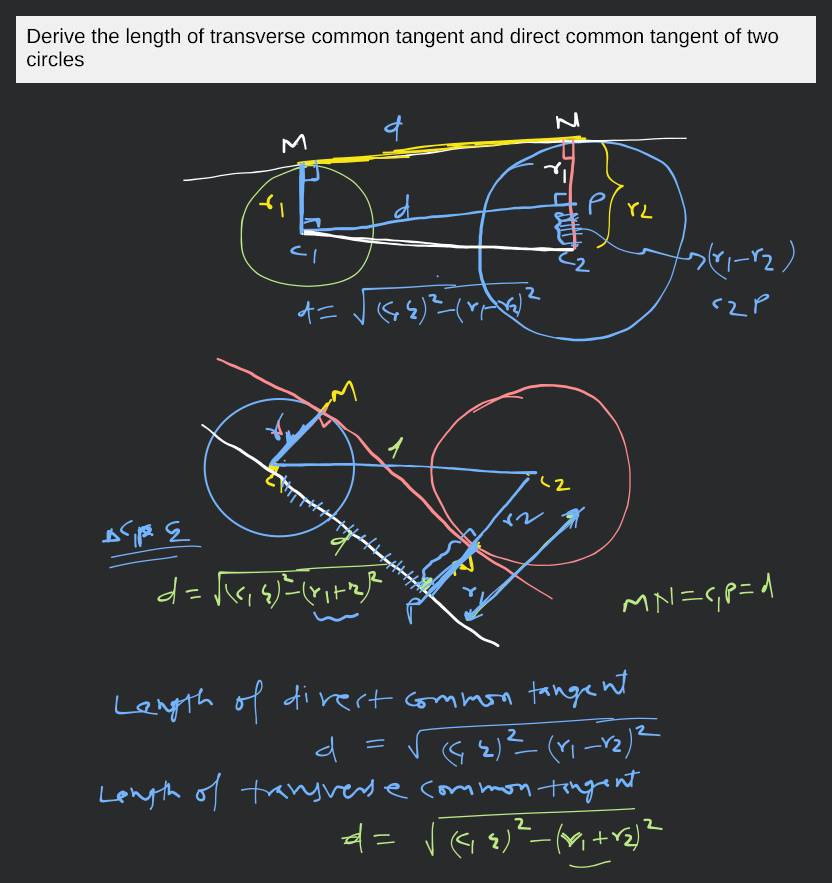 Derive the length of transverse common tangent and direct common tangent of two
circles
d
M
N
r1
r1
d
P
r2
C1
C2
(r1-r2)
C2P
d = √(C1C2)²-(r1-r2)²
M
r1
d
C1
C2
r2
ΔC1PC2
d
N
r1
P
d = √(C1C2)²-(r1+r2)²
MN=C1P=d
Length of direct common tangent
d = √(C1C2)²-(r1-r2)²
Length of transverse common tangent
d = √(C1C2)²-(r1+r2)²